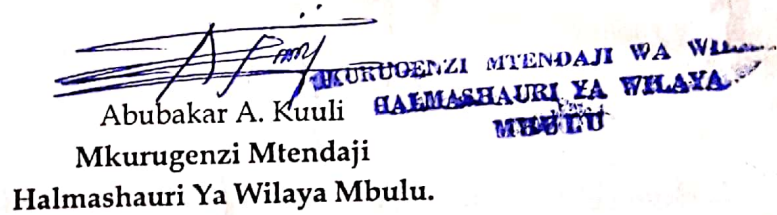 MKURUGENZI MTENDAJI WA
HALMASHAURI YA WILAYA
MBULU
Abubakar A. Kuuli
Mkurugenzi Mtendaji
Halmashauri Ya Wilaya Mbulu.